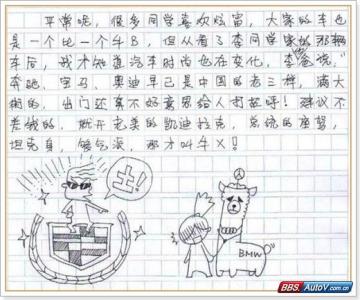 平常呢,很多同学喜欢炫富,大家的车也
是一个比一个牛B,但从看了李同学家的那辆
车后,我才知道汽车时尚也在变化,李爸说,“
奔驰、宝马、奥迪早已是中国的老三样,满大
街的,出门还真不好意思给人打招呼!建议不
差钱的,就开老美的凯迪拉克,总统的座驾,
坦克身,够气派,那才叫牛X!
土!
BMW
BBS.AutoV.com.cn